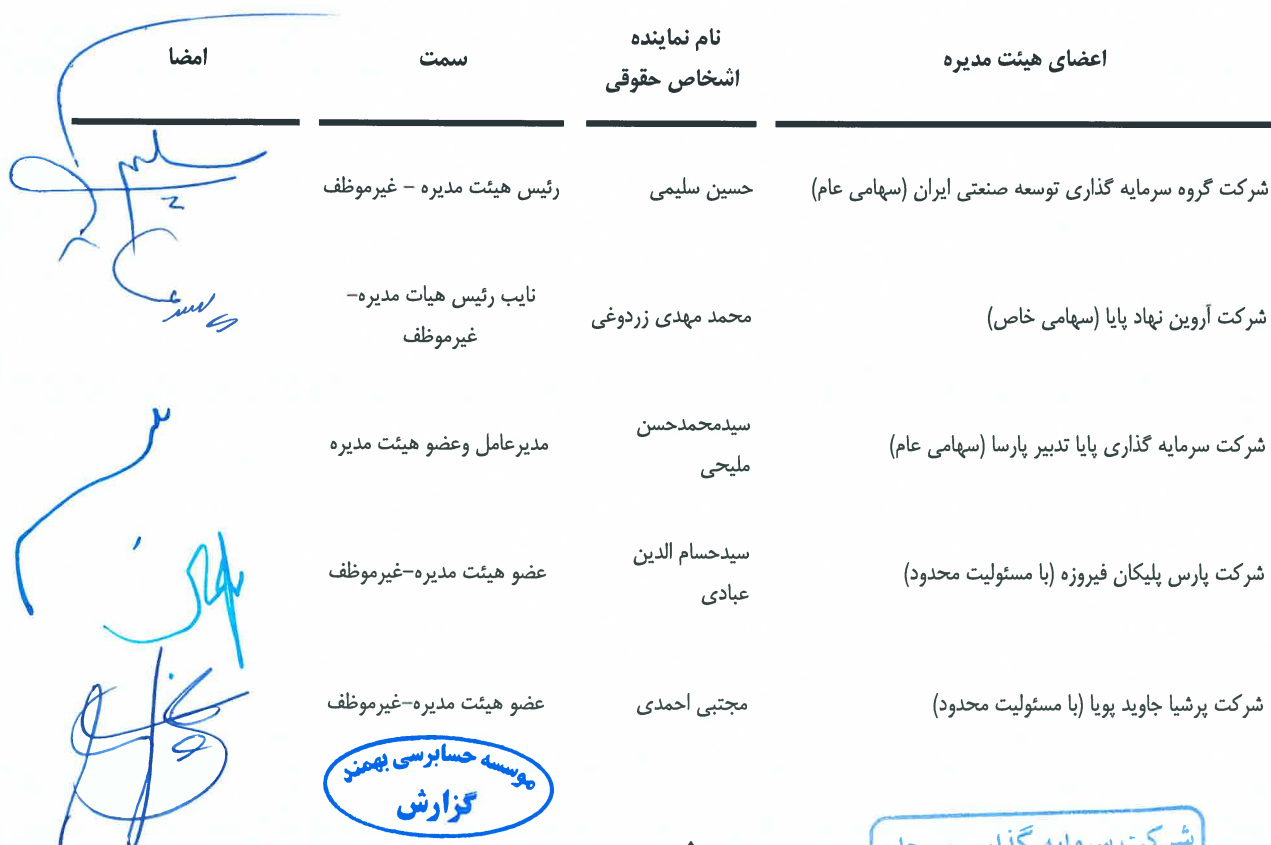 اعضای هیئت مدیره
نام نماینده
اشخاص حقوقی
سمت
امضا
شرکت گروه سرمایه گذاری توسعه صنعتی ایران (سهامی عام)
حسین سلیمی
رئیس هیئت مدیره – غیرموظف
شرکت آروین نهاد پایا (سهامی خاص)
محمد مهدی زردوغی
نایب رئیس هیات مدیره–
غیرموظف
شرکت سرمایه گذاری پایا تدبیر پارسا (سهامی عام)
سیدمحمدحسن
ملیحی
مدیرعامل وعضو هیئت مدیره
شرکت پارس پلیکان فیروزه (با مسئولیت محدود)
سیدحسام الدین
عبادی
عضو هیئت مدیره–غیرموظف
شرکت پرشیا جاوید پویا (با مسئولیت محدود)
مجتبی احمدی
عضو هیئت مدیره–غیرموظف
موسسه حسابرسی بهمند
گزارش
شرکت سرمایه گذاری